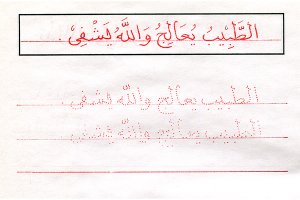 الطَّبِيْبُ يُعَالِجُ وَاللّٰهُ يَشْفِيْ.
الطبيب يعالج والله يشفي
الطبيب يعالج والله يشفي